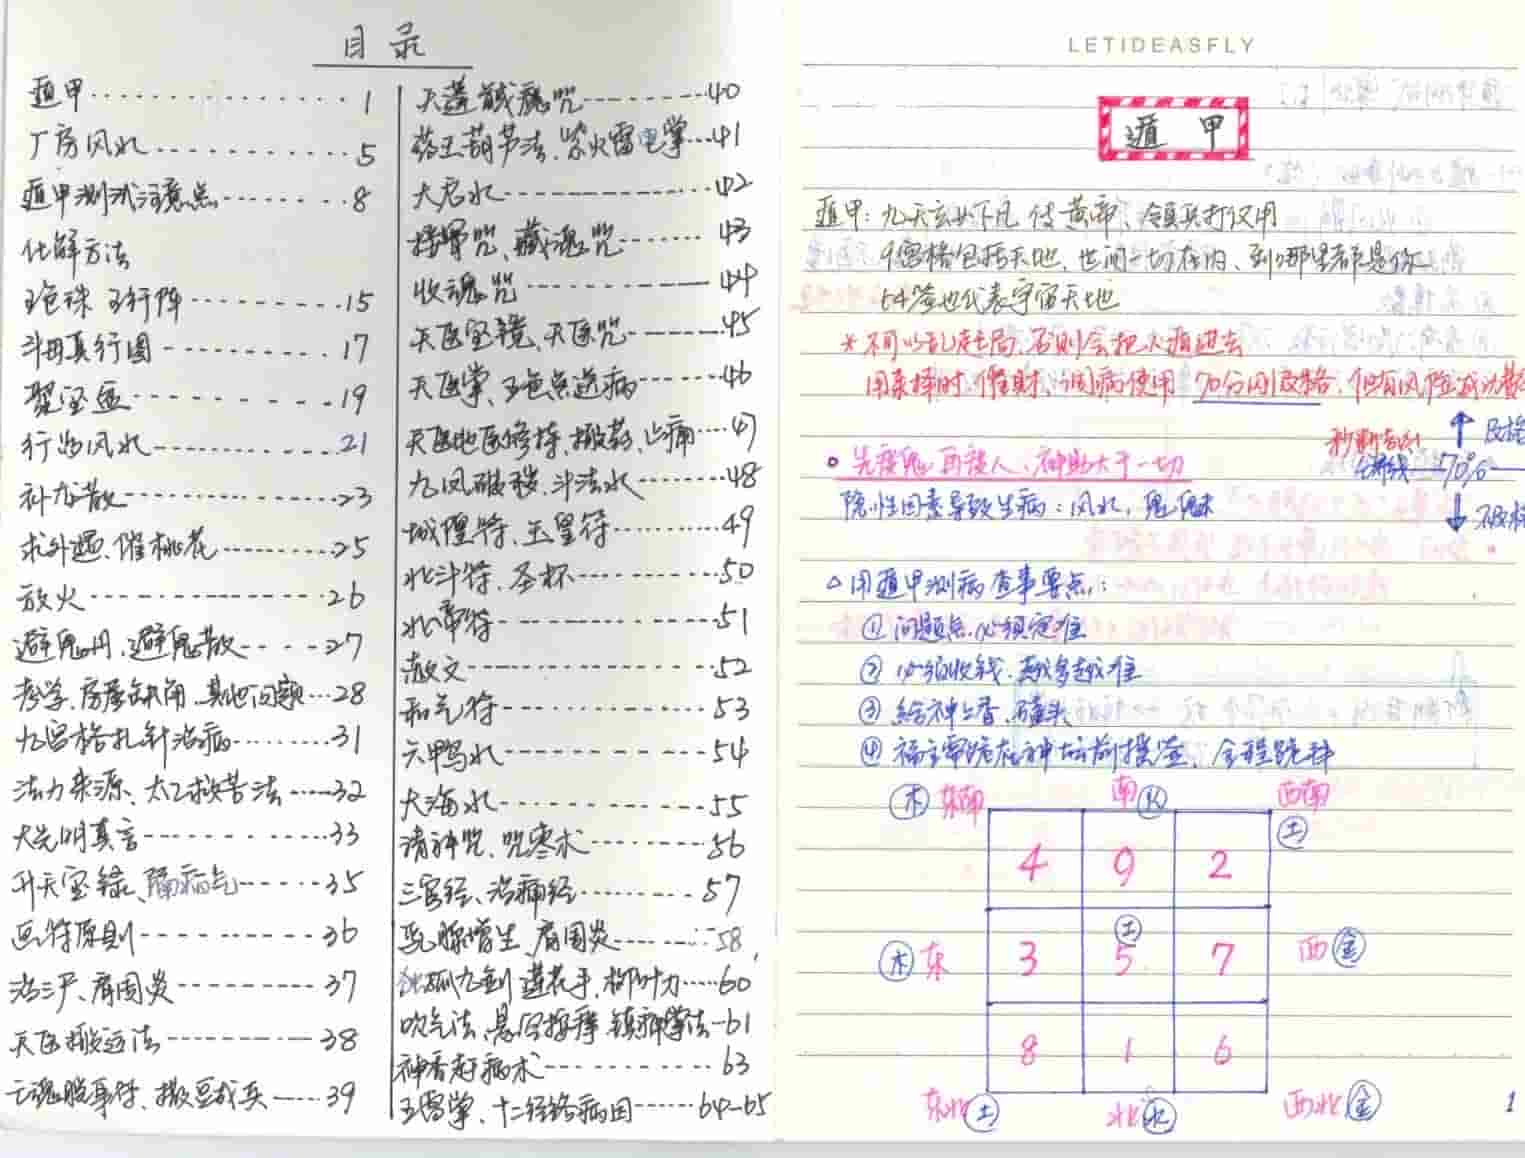 目录
遁甲 1
厂房风水 5
遁甲测试注意点 8
化解方法
五色珠 五行阵 15
斗母真行图 17
聚宝盆 19
行为风水 21
补龙散 23
求外遇、催桃花 25
放火 26
避鬼丹、避鬼散 27
考学、房屋缺角、其他问题 28
九宫格扎针治病 31
法力来源、太乙救苦法 32
大光明真言 33
升天宝箓、隔病气 35
画符原则 36
治三尸、肩周炎 37
天医搬运法 38
亡魂脱事传、撒豆成兵 39
天蓬誠魔咒 40
药王葫芦法、紫火雷电掌 41
大忌水 42
接骨咒、藏魂咒 43
收魂咒 44
天医宝镜、天医咒 45
天医掌、五色点送病 46
天医地医修持、撒药、止痛 47
九凤破秽、斗法水 48
城隍符、玉皇符 49
北斗符、圣杯 50
北帝符 51
赦文 52
和气符 53
六鸭水 54
大海水 55
请神咒、咒枣术 56
三官经、治痛经 57
乳腺增生、肩周炎 58
独孤九剑 莲花手、柳叶刀 60
吹气法、悬空按摩 镇神掌法 61
神香赶病术 63
五雷掌、十二经络病因 64-65
LETIDEASFLY
遁甲
遁甲：九天玄女下凡 传黄帝、领兵打仗用
9宫格包括天地、世间一切在内、到哪里都是你
64签也代表宇宙天地
* 不可以乱起局、否则会把人遁进去
用来择时、催财、治病使用 70分以及格、但有风险成功
先度鬼 再度人、神助大于一切
秒断吉凶
分界线 70%
及格
不及格
隐性因素导致生病：风水，鬼魅
△ 用遁甲测病查事要点：
① 问题点必须定准
② 必须收钱、越多越准
③ 给神上香、磕头
④ 福主需跪在神坛前摇签、全程跪拜
木 东南 南 火 西南 土
4 9 2
土
木 东 3 5 7 西 金
8 1 6
东北 土 北 水 西北 金
1